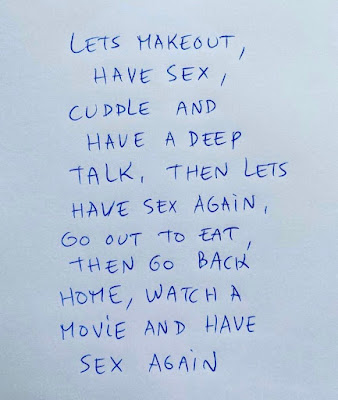 LETS MAKEOUT,
HAVE SEX,
CUDDLE AND
HAVE A DEEP
TALK, THEN LETS
HAVE SEX AGAIN,
GO OUT TO EAT,
THEN GO BACK
HOME, WATCH A
MOVIE AND HAVE
SEX AGAIN